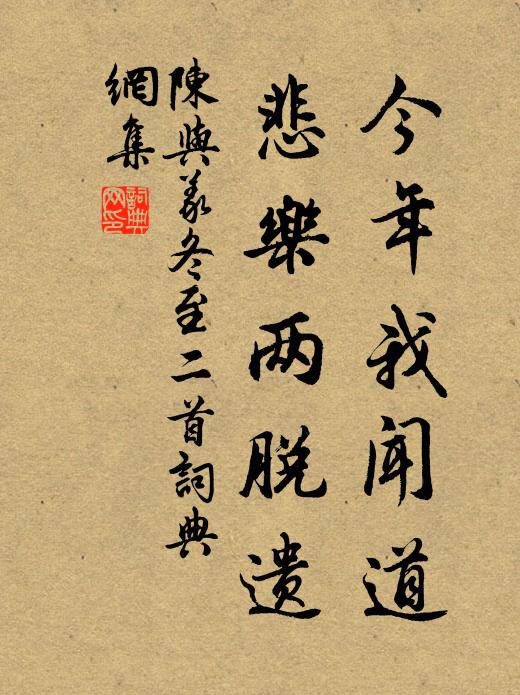 今年我聞道
悲樂两脱遗
陳與義冬至二首詞典
網集
詞典
网印